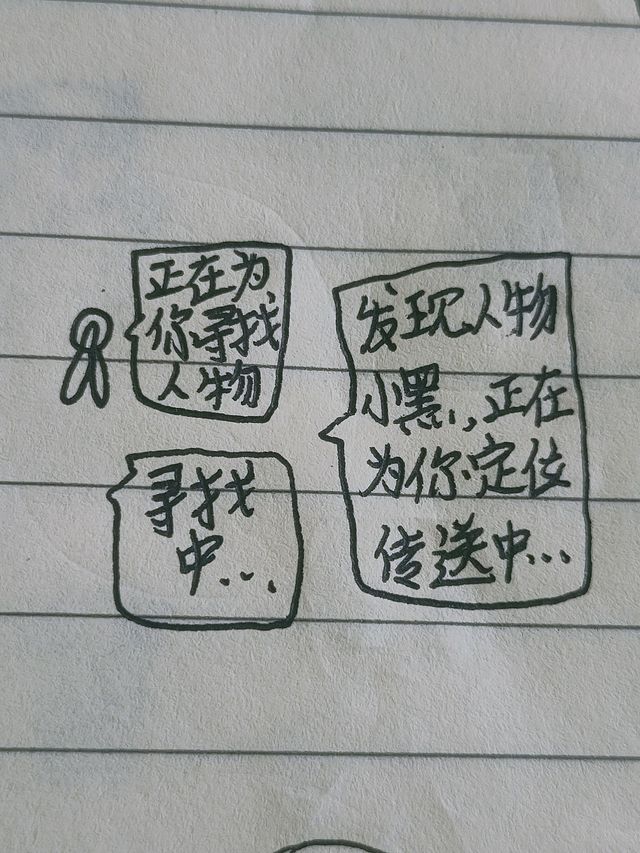 正在为
你寻找
人物
寻找
中...
发现人物
小黑,正在
为你定位
传送中...